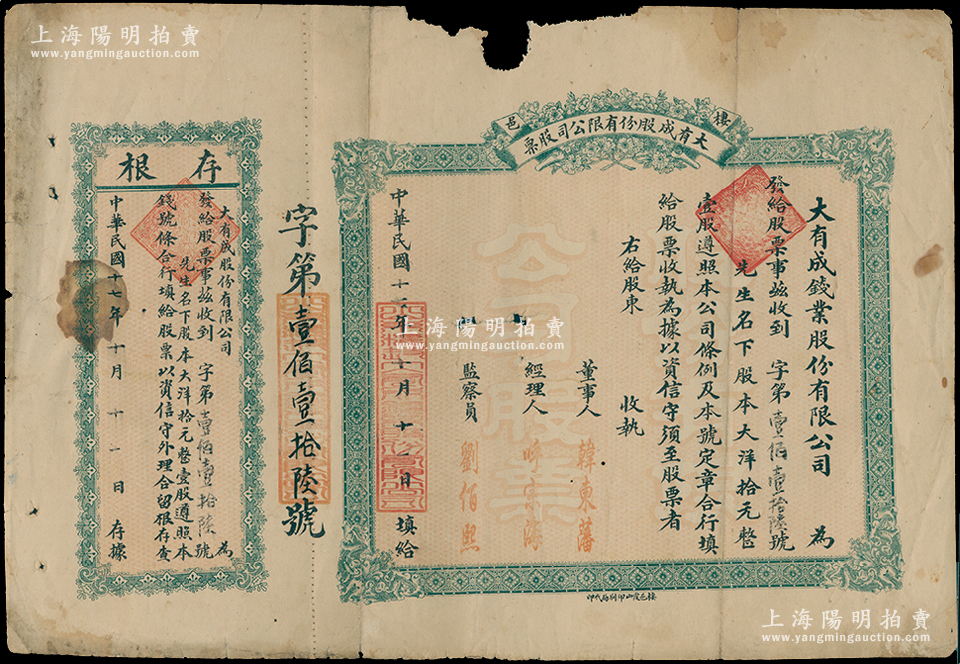 上海陽明拍賣
www.yangmingauction.com
上海陽明拍賣
www.yangmingauction.com
樓邑
大有成股份有限公司股票
大有成錢業股份有限公司 為
發給股票事茲收到 字第壹佰壹拾陸號
先生名下股本大洋拾元整
壹股遵照本公司條例及本號定章合行填
給股票收執為據以資信守須至股票者
右給股東 收執
董事人 韓東藩
經理人
監察員 劉伯熙
中華民國十七年十月十一日填給
公司股票
字第壹佰壹拾陸號
存根
大有成股份有限公司 為
發給股票事茲收到 字第壹佰壹拾陸號
先生名下股本大洋拾元整壹股遵照本
錢號條合行填給股票以資信守外理合留根存查
中華民國十七年十月十一日存據
上海陽明拍賣
www.yangmingauction.com
上海陽明拍賣
www.yangmingauction.com